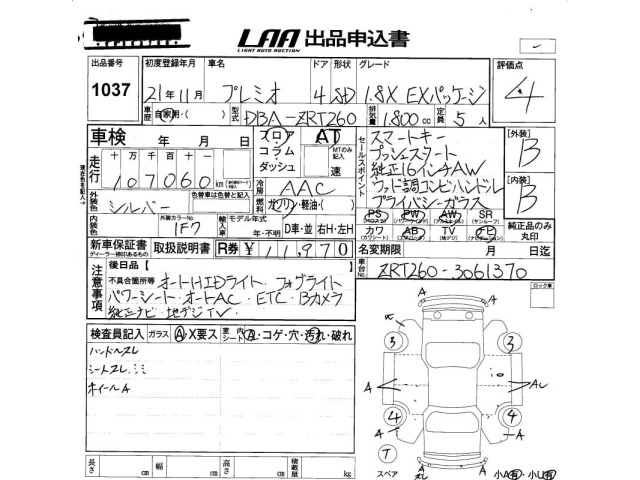 LAA 出品申込書
LIGHT AUTO AUCTION
出品番号 初度登録年月 車名 ドア 形状 グレード 評価点
1037 21年11月 プレミオ 4 SD 1.8X EXパッケージ 4
車歴 自家用・( ) 型式 DBA-ZRT260 排気量 1.800 cc 定員 5人
車検 年 月 日 フロア AT
コラム・ MTのみ記入
ダッシュ 速
走行 十 万 千 百 十
107060 km
冷房 AAC
外装色 シルバー 色替車は色替と記入
燃料 ガソリン・軽油・( )
内装色 外装カラーNo. 1F7 輸入車 モデル年式 年・不明 D車・並 右H・左H
セールスポイント
スマートキー
プッシュスタート
純正16インチAW
ウッド調コンビハンドル
プライバシーガラス
PS PW AW SR
カワ AB TV ナビ
(カワシート) (エアバッグ) (地デジ) (ナビ)
【外装】 B
【内装】 B
純正品のみ丸印
新車保証書 取扱説明書 R券 ¥ 11,970 名変期限 月 日迄
ディーラー検印あるもの
車台No. ZRT260-3061370
注意事項 後日品【 】
不具合箇所等 オートHIDライト・フォグライト
パワーシート・オートAC・ETC・Bカメラ
純正ナビ・地デジTV
ロック車
検査員記入 ガラス A・X要ス 車内シート ス・コゲ・穴・汚れ・破れ
ハンドルスレ
シートスレ、シミ
ホイールA
A A
3 3
A A AL
4 4
A A
T
スペア A 小A有・小U有
長さ cm 幅 cm 高さ cm 積載量 kg